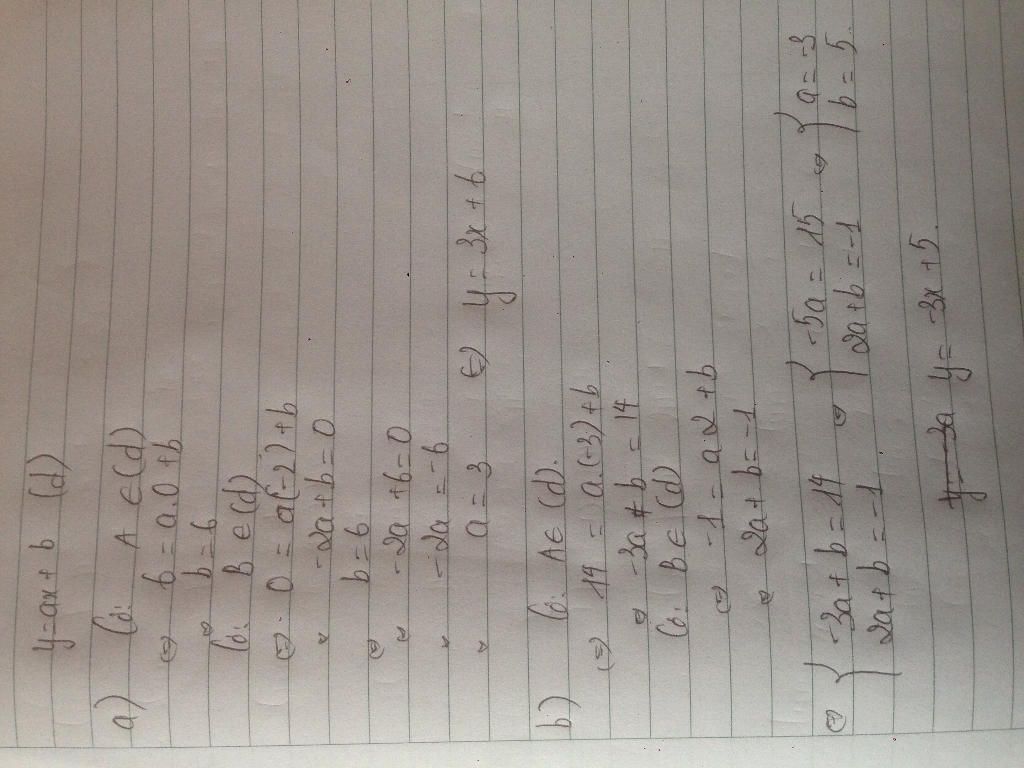 y=ax+b (d)
a) Có: A ∈ (d)
⇔ 6 = a.0 + b
⇔ b = 6
Có: B ∈ (d)
⇔ 0 = a(-2) + b
⇔ -2a + b = 0
⇔ b = 6
⇔ -2a + 6 = 0
⇔ -2a = -6
⇔ a = 3 ⇔ y = 3x + 6
b) Có: A ∈ (d).
⇔ 14 = a(-3) + b
⇔ -3a + b = 14
Có: B ∈ (d)
⇔ -1 = a.2 + b
⇔ 2a + b = -1
⇔ { -3a + b = 14 ⇔ { -5a = 15 ⇔ { a = -3
2a + b = -1 2a + b = -1 b = 5.
y = -3a y = -3x + 5.